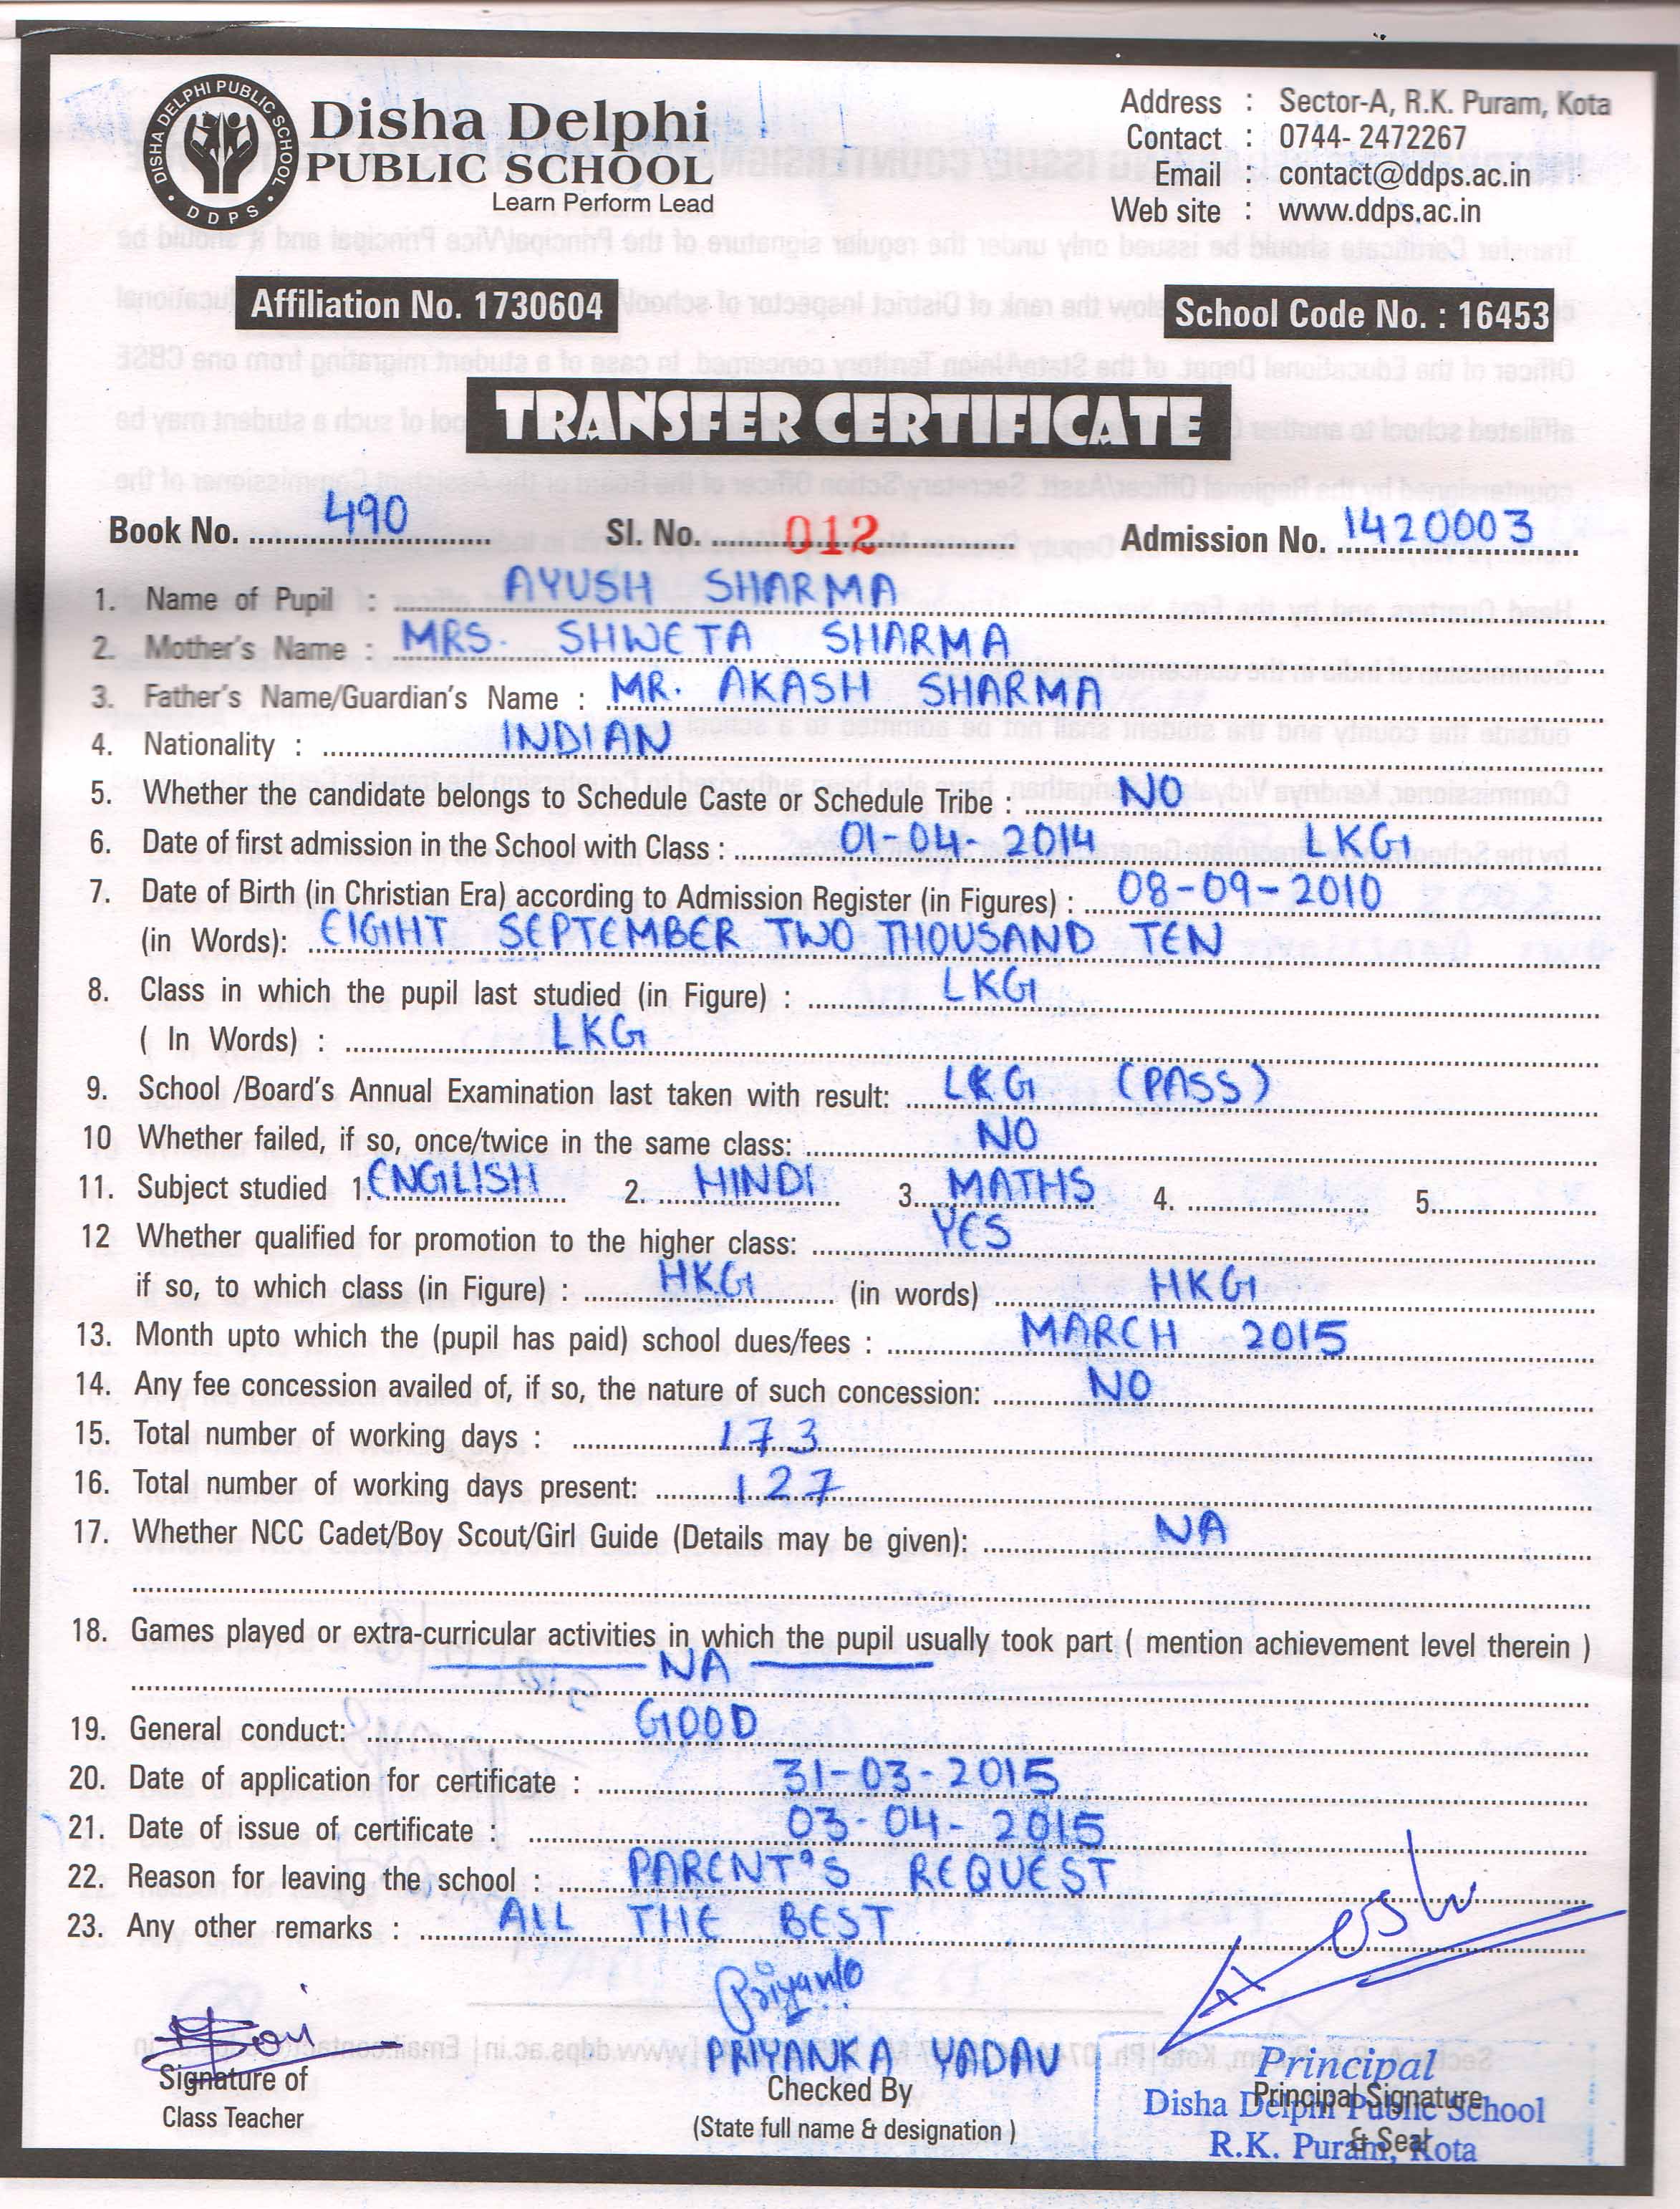 DISHA DELPHI PUBLIC SCHOOL
• D D P S •
Disha Delphi
PUBLIC SCHOOL
Learn Perform Lead
Address : Sector-A, R.K. Puram, Kota
Contact : 0744- 2472267
Email : contact@ddps.ac.in
Web site : www.ddps.ac.in
Affiliation No. 1730604
School Code No. : 16453
TRANSFER CERTIFICATE
Book No. 490 Sl. No. 012 Admission No. 1420003
1. Name of Pupil : AYUSH SHARMA
2. Mother's Name : MRS. SHWETA SHARMA
3. Father's Name/Guardian's Name : MR. AKASH SHARMA
4. Nationality : INDIAN
5. Whether the candidate belongs to Schedule Caste or Schedule Tribe : NO
6. Date of first admission in the School with Class : 01-04-2014 LKG
7. Date of Birth (in Christian Era) according to Admission Register (in Figures) : 08-09-2010
(in Words): EIGHT SEPTEMBER TWO THOUSAND TEN
8. Class in which the pupil last studied (in Figure) : LKG
( In Words) : LKG
9. School /Board's Annual Examination last taken with result: LKG (PASS)
10 Whether failed, if so, once/twice in the same class: NO
11. Subject studied 1. ENGLISH 2. HINDI 3. MATHS 4. 5.
12 Whether qualified for promotion to the higher class: YES
if so, to which class (in Figure) : HKG (in words) HKG
13. Month upto which the (pupil has paid) school dues/fees : MARCH 2015
14. Any fee concession availed of, if so, the nature of such concession: NO
15. Total number of working days : 173
16. Total number of working days present: 127
17. Whether NCC Cadet/Boy Scout/Girl Guide (Details may be given): NA
18. Games played or extra-curricular activities in which the pupil usually took part ( mention achievement level therein )
NA
19. General conduct: GOOD
20. Date of application for certificate : 31-03-2015
21. Date of issue of certificate : 03-04-2015
22. Reason for leaving the school : PARENT'S REQUEST
23. Any other remarks : ALL THE BEST
Priyanka
PRIYANKA YADAV
Signature of
Class Teacher
Checked By
(State full name & designation )
Principal
Principal Signature
Disha Delphi Public School
& Seal
R.K. Puram, Kota